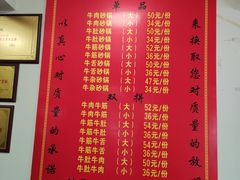 单品
牛肉砂锅（大）50元/份
牛肉砂锅（小）34元/份
牛肚砂锅（大）52元/份
牛肚砂锅（小）36元/份
牛筋砂锅（大）52元/份
牛筋砂锅（小）36元/份
牛舌砂锅（大）50元/份
牛舌砂锅（小）36元/份
牛杂砂锅（大）50元/份
牛杂砂锅（小）34元/份
双拼
牛肉牛筋（大）52元/份
牛肉牛筋（小）36元/份
牛筋牛肚（大）54元/份
牛筋牛肚（小）36元/份
牛筋牛舌（大）54元/份
牛筋牛舌（小）36元/份
牛肚牛肉（大）52元/份
牛肚牛肉（小）36元/份
以真心对质量的承诺
来换取您对质量的放